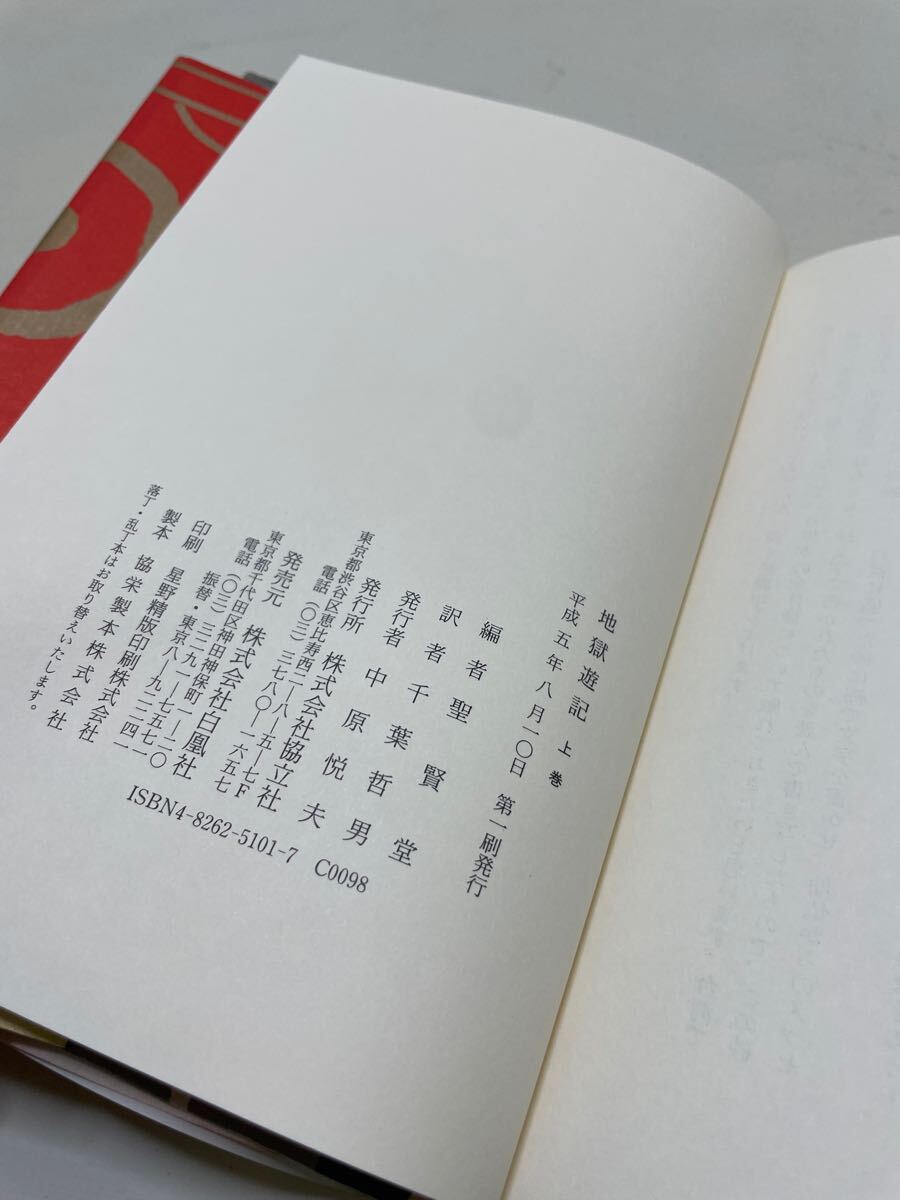 地獄遊記 上巻
平成五年八月一〇日 第一刷発行
編者 聖賢堂
訳者 千葉哲男
発行者 中原悦夫
発行所 株式会社協立社
東京都渋谷区恵比寿西二―八―五―七F
電話 (〇三) 三七八〇―一六五七
発売元 株式会社白凰社
東京都千代田区神田神保町一―二〇
電話 (〇三) 三二九一―七五七一
振替・東京八―九二二四一
印刷 星野精版印刷株式会社
製本 協栄製本株式会社
落丁・乱丁本はお取り替えいたします。
ISBN4-8262-5101-7 C0098